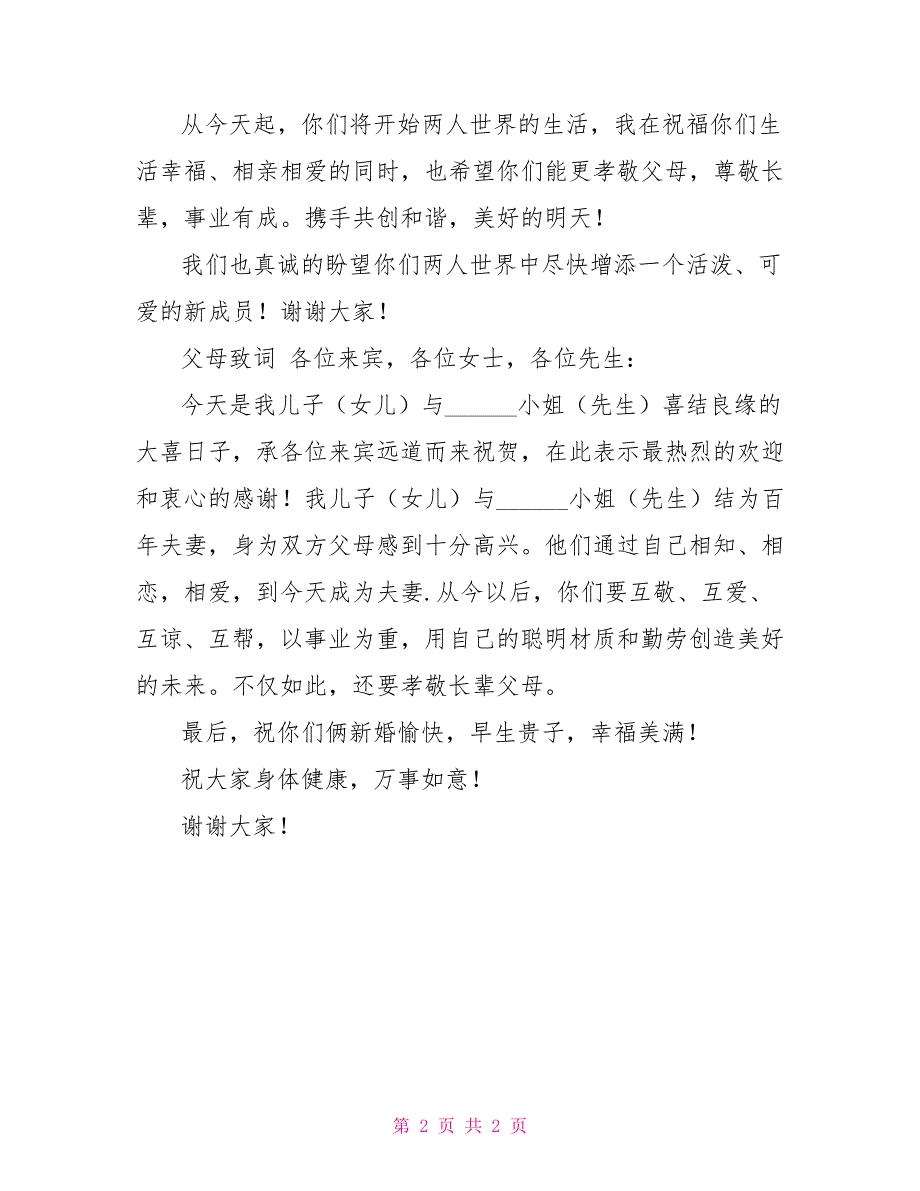 从今天起，你们将开始两人世界的生活，我在祝福你们生
活幸福、相亲相爱的同时，也希望你们能更孝敬父母，尊敬长
辈，事业有成。携手共创和谐，美好的明天！
我们也真诚的盼望你们两人世界中尽快增添一个活泼、可
爱的新成员！谢谢大家！
父母致词 各位来宾，各位女士，各位先生：
今天是我儿子（女儿）与______小姐（先生）喜结良缘的
大喜日子，承各位来宾远道而来祝贺，在此表示最热烈的欢迎
和衷心的感谢！我儿子（女儿）与______小姐（先生）结为百
年夫妻，身为双方父母感到十分高兴。他们通过自己相知、相
恋，相爱，到今天成为夫妻.从今以后，你们要互敬、互爱、
互谅、互帮，以事业为重，用自己的聪明材质和勤劳创造美好
的未来。不仅如此，还要孝敬长辈父母。
最后，祝你们俩新婚愉快，早生贵子，幸福美满！
祝大家身体健康，万事如意！
谢谢大家！
第 2 页 共 2 页